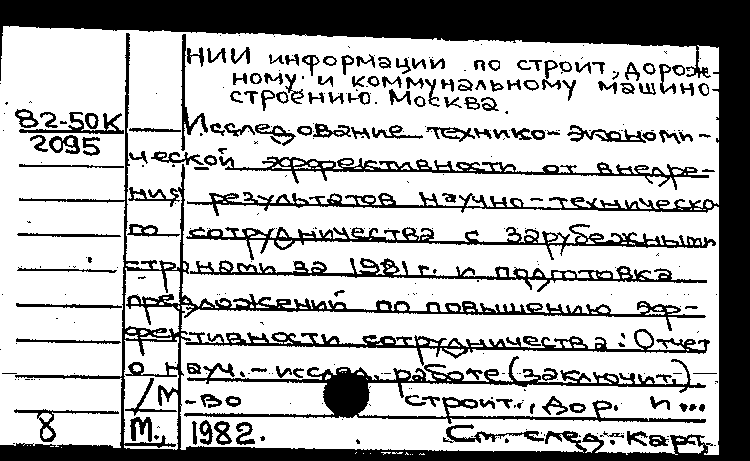 НИИ информации по строит., дорож-
ному и коммунальному машино-
строению. Москва.
82-50К
2095
Исследование технико-экономи-
ческой эффективности от внедре-
ния результатов научно-техническо
го сотрудничества с зарубежными
странами за 1981 г. и подготовка
предложений по повышению эф-
фективности сотрудничества: Отчет
о науч.-исслед. работе (заключит.).
/М-во строит., дор. и...
8 М., 1982. См. след. карт.